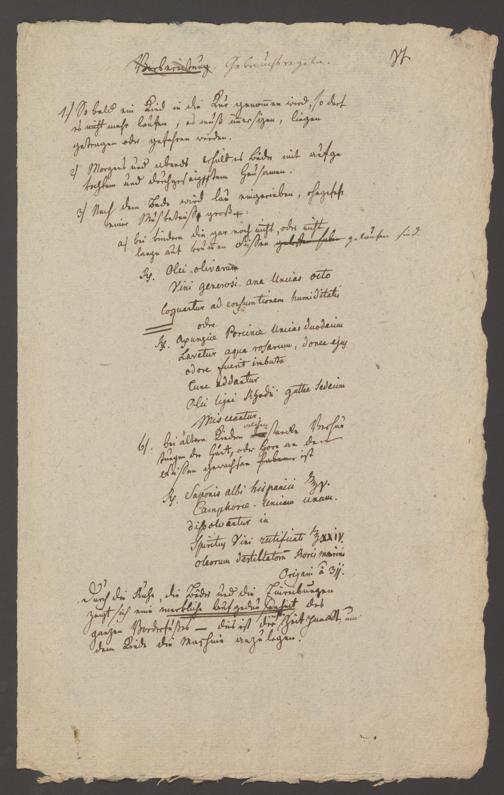 Vorbereitung. Gebrauchsregeln.
1.) So bald ein Kind in die Kur genommen wird, so darf
es nicht mehr laufen, es muß immer sizen, liegen
getragen oder gefahren werden.
2) Morgens und abends erhält es Bäder mit aufge
kochten und durchgeseigtem Heusamen.
3) Nach dem Bade wird lau eingerieben,
einer groß
a) bei Kindern die gar noch nicht, oder nicht
lange auf krummen Füßen gelaufen sind.
Rp. Olei olivarum
Vini generosi ana Uncias octo
Coquantur ad consumtionem humiditatis
odre
Rp. Axungiae Porcinae Uncias duodecim
Lavetur aqua rosarum, donec ejus
odore fuerit imbuta
Tunc addantur
Olei ligni Rhodii guttae sedecim
Misceantur.
b). bei ältern Kindern wo starke Verhär
tungen der Haut, oder Horn an dem
Füßen gewachsen ist
Rp. Saponis albi hispanici
Camphorae. Unciam unam.
dissolvantur in
Spiritus Vini rectificati ℥XXIV
oleorum destillatorum Roris marini
Origani a ʒij.
Durch die Ruhe, die Bäder und die Einreibungen
zeigt sich eine merkliche des
ganzen Vorderfußes — dies ist der Zeitpunkt um
dem Kinde die Maschine anzulegen.